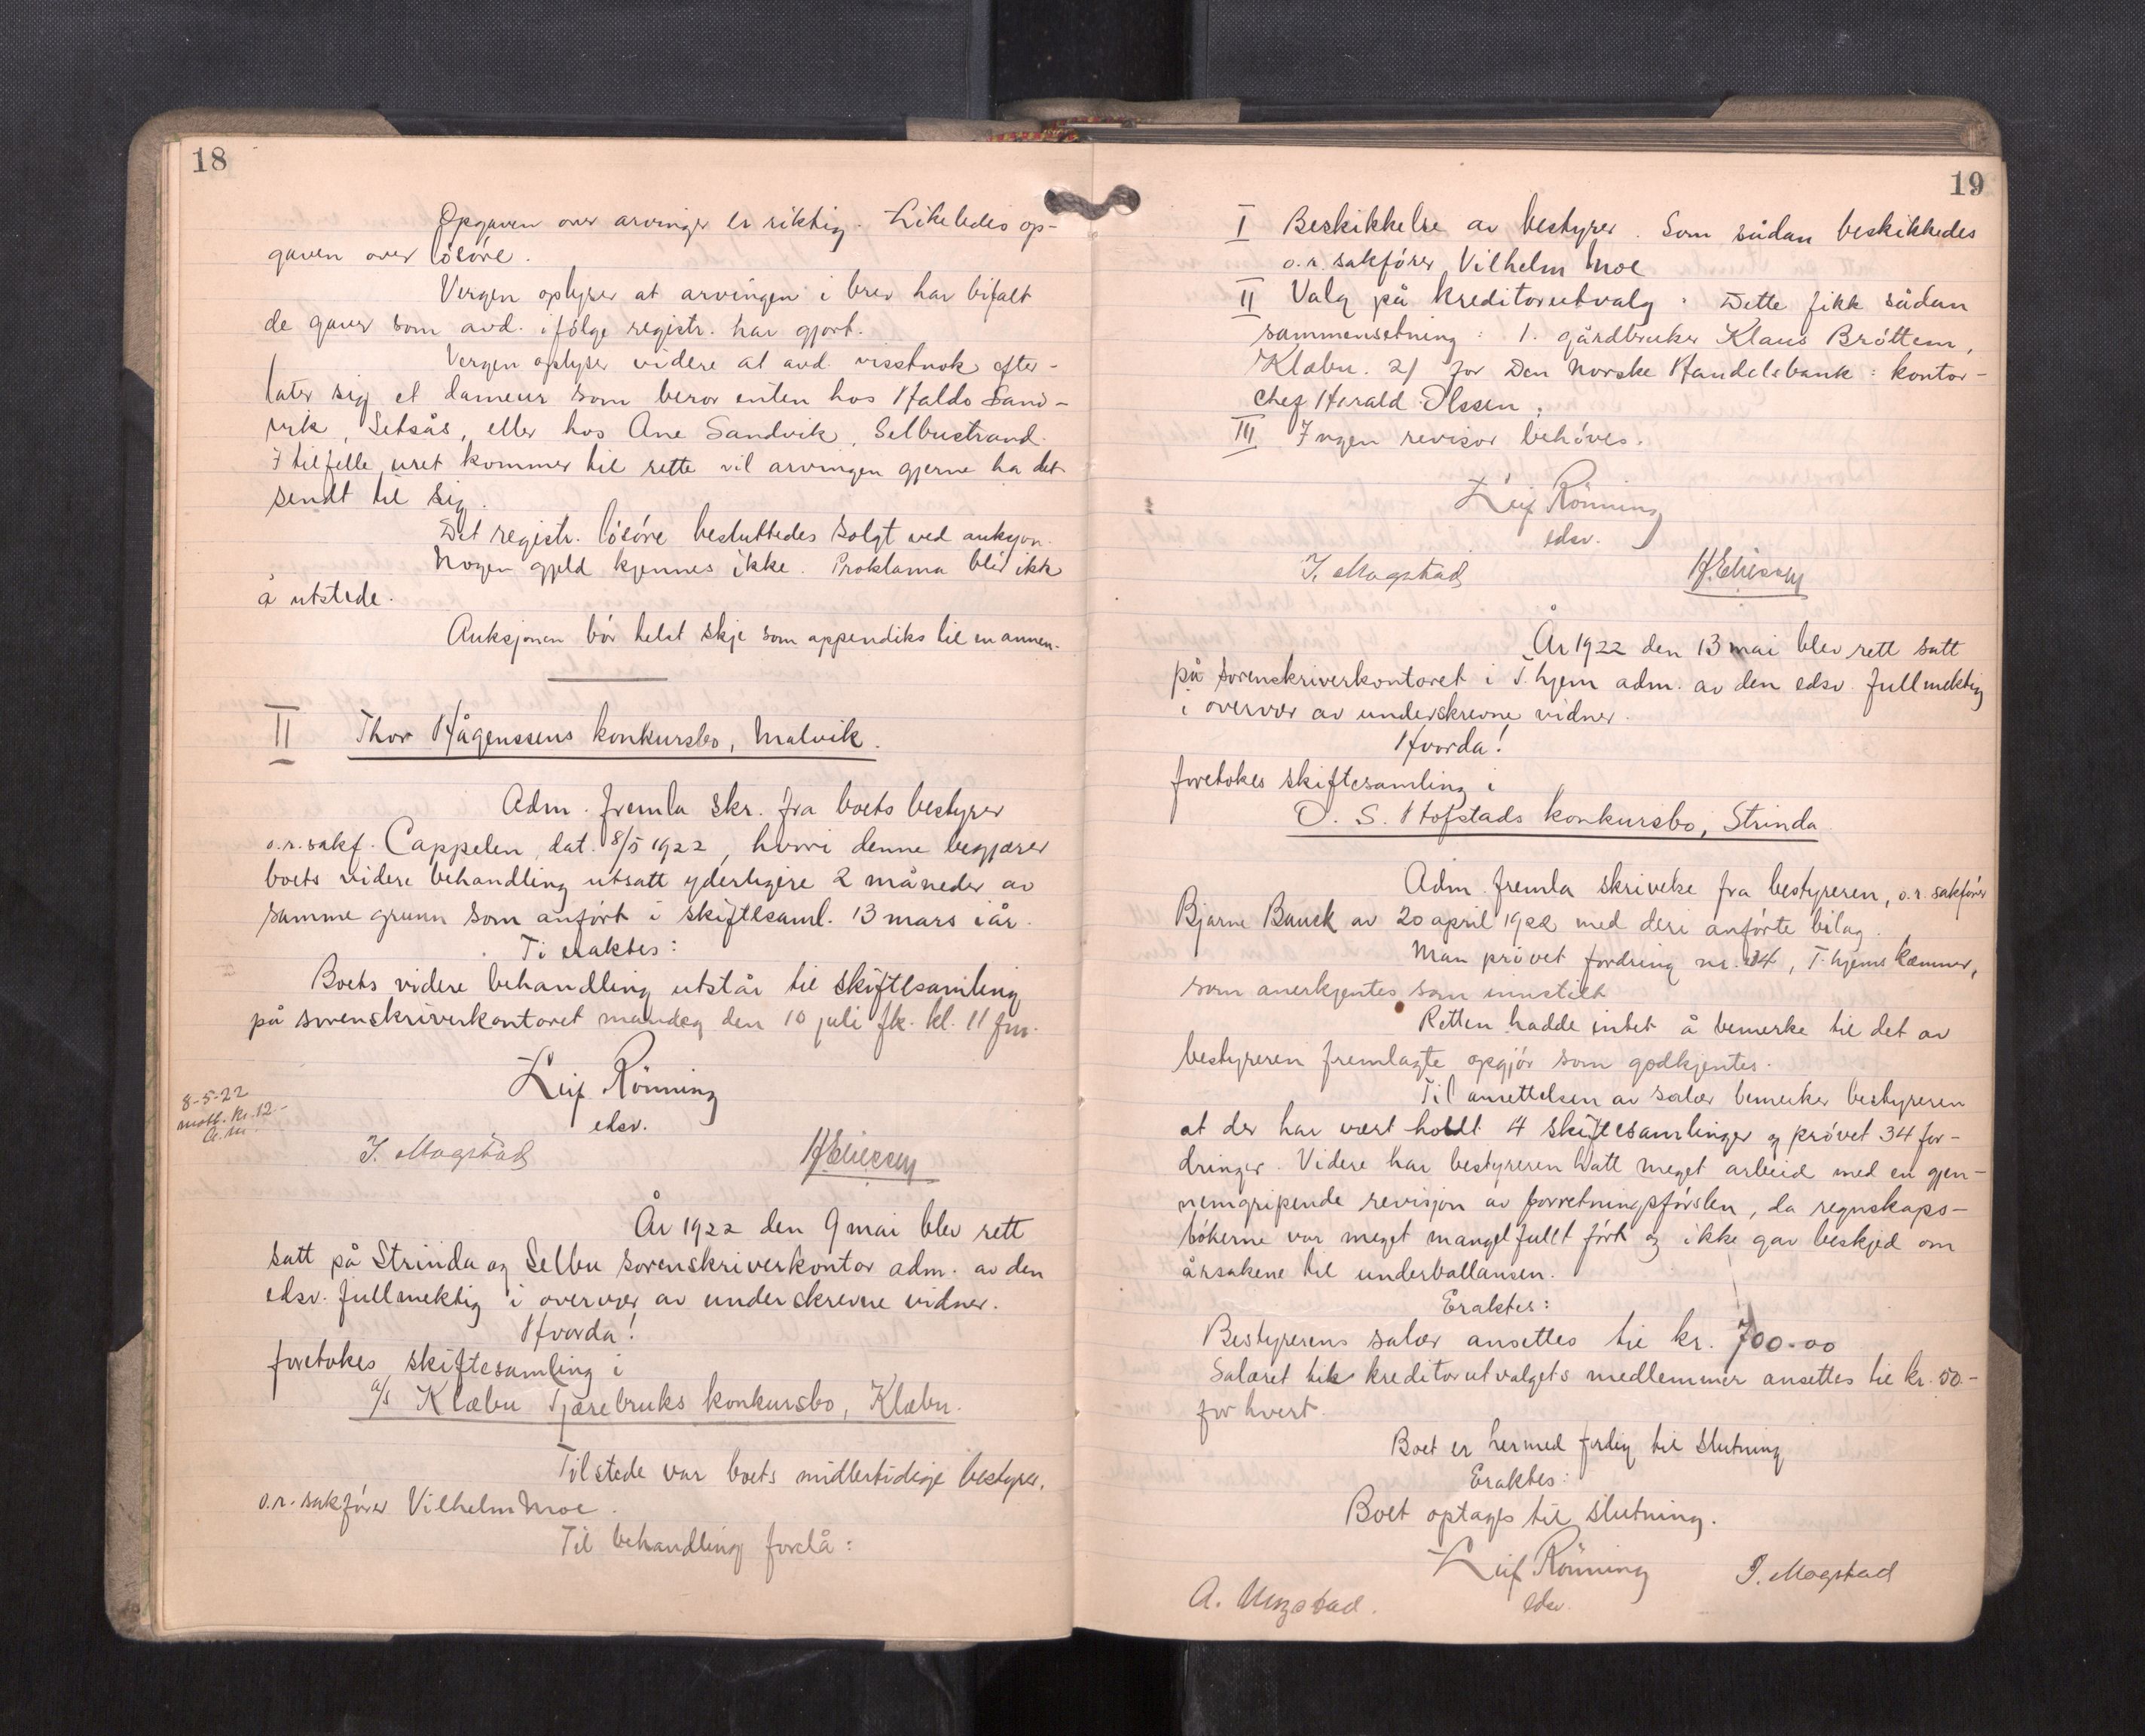 18
Opgaven over arvinger er riktig. Likeledes op-
gaven over lösöre.
Vergen oplyser at arvingen i brev har bifalt
de gaver som avd. ifölge registr. har gjort.
Vergen oplyser videre at avd. visstnok efter-
later sig et dameur som beror enten hos Haldo Sand-
vik, Setsås, eller hos Ane Sandvik, Selbustrand.
I tilfelle uret kommer til rette vil arvingen gjerne ha det
sendt til sig.
Det registr. lösöre besluttedes solgt ved auksjon.
Nogen gjeld kjennes ikke. Proklama blir ikke
å utstede.
Auksjonen bör helst skje som appendiks til en annen.
II Thor Hågenssens konkursbo, Malvik.
Adm. fremla skr. fra boets bestyrer
o.r.sakf. Cappelen, dat. 8/5 1922, hvori denne begjærer
boets videre behandling utsatt yderligere 2 måneder av
samme grunn som anfört i skiftesaml. 13 mars iår.
Ti eraktes:
Boets videre behandling utstår til skiftesamling
på sorenskriverkontoret mandag den 10 juli fk. kl. 11 fm.
Leif Rönning
edsv.
8-5-22
mott. kr. 12-
A.M.
J. Mogstad
År 1922 den 9 mai blev rett
satt på Strinda og Selbu sorenskriverkontor adm. av den
edsv. fullmektig i overvær av underskrevne vidner.
Hvorda!
foretokes skiftesamling i
a/s Klæbu Tjærebruks konkursbo, Klæbu.
Tilstede var boets midlertidige bestyrer,
o.r.sakförer Vilhelm Moe.
Til behandling forelå:
19
I Beskikkelse av bestyrer. Som sådan beskikkedes
o.r.sakförer Vilhelm Moe
II Valg på kreditorutvalg: Dette fikk sådan
sammensetning: 1. gårdbruker Klaus Bröttem,
Klæbu. 2) for Den Norske Handelsbank: kontor-
chef Harald Olssen.
III Ingen revisor behöves.
Leif Rönning
edsv.
J. Mogstad
År 1922 den 13 mai blev rett satt
på sorenskriverkontoret i T.hjem adm. av den edsv. fullmektig
i overvær av underskrevne vidner.
Hvorda!
foretokes skiftesamling i
O. S. Hofstads konkursbo, Strinda
Adm. fremla skrivelse fra bestyreren, o.r.sakförer
Bjarne Bauck av 20 april 1922 med deri anförte bilag.
Man prövet fordring nr. 34, T.hjems kæmner,
som anerkjentes som innstilt.
Retten hadde intet å bemerke til det av
bestyreren fremlagte opgjör som godkjentes.
Til ansettelsen av salær bemerker bestyreren
at der har vært holdt 4 skiftesamlinger og prövet 34 for-
dringer. Videre har bestyreren hatt meget arbeid med en gjen-
nemgripende revisjon av forretningsförslen, da regnskaps-
bökerne var meget mangelfullt fört og ikke gav beskjed om
årsakene til underballansen.
Eraktes:
Bestyrerens salær ansettes til kr. 700.00
Salæret til kreditorutvalgets medlemmer ansettes til kr. 50.-
for hvert.
Boet er hermed ferdig til slutning
Eraktes:
Boet optages til slutning.
Leif Rönning J. Mogstad
edsv.